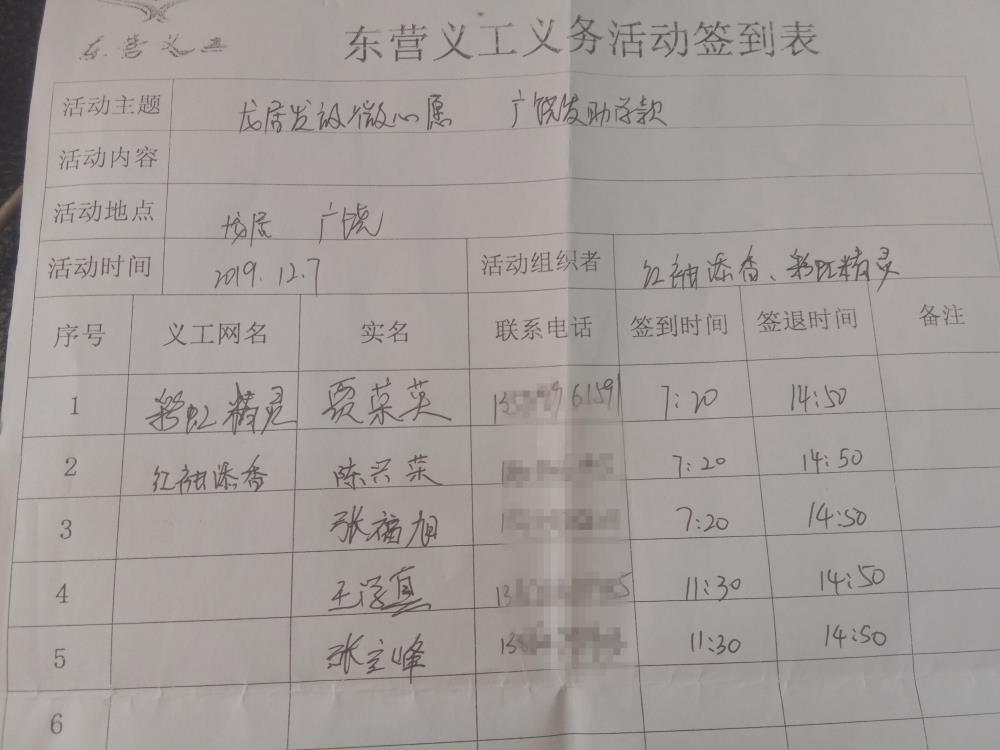 东营义工
东营义工义务活动签到表
活动主题 龙居发放微心愿 广饶发助学款
活动内容
活动地点 龙居 广饶
活动时间 2019.12.7 活动组织者 红袖添香、彩虹精灵
序号 义工网名 实名 联系电话 签到时间 签退时间 备注
1 彩虹精灵 贾荣英 61591 7:20 14:50
2 红袖添香 陈兴荣 7:20 14:50
3 张福旭 7:20 14:50
4 王学真 11:30 14:50
5 张立峰 11:30 14:50
6